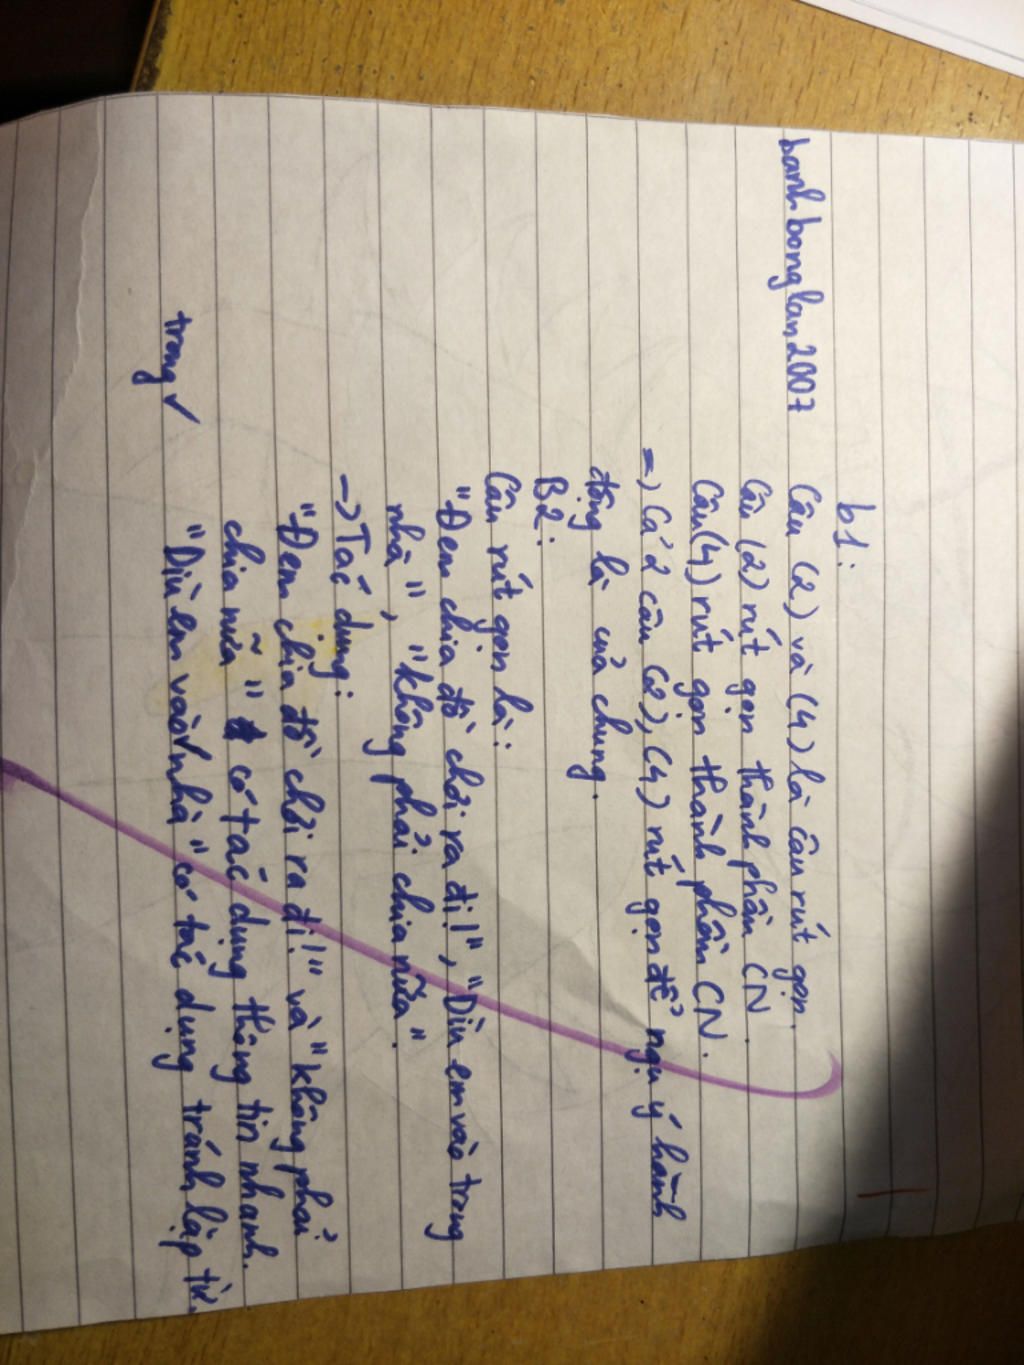 b1:
banhbonglan2007
Câu (2) và (4) là câu rút gọn.
Câu (2) rút gọn thành phần CN.
Câu (4) rút gọn thành phần CN.
=> Cả 2 câu (2), (4) rút gọn để ngụ ý hành
động là của chung.
B2:
Câu rút gọn là:
"Đem chia đồ chơi ra đi!", "Dìu em vào trong
nhà", "không phải chia nữa".
-> Tác dụng:
"Đem chia đồ chơi ra đi!" và "không phải
chia nữa" có tác dụng thông tin nhanh.
"Dìu em vào√nhà" có tác dụng tránh lặp từ.
trong√